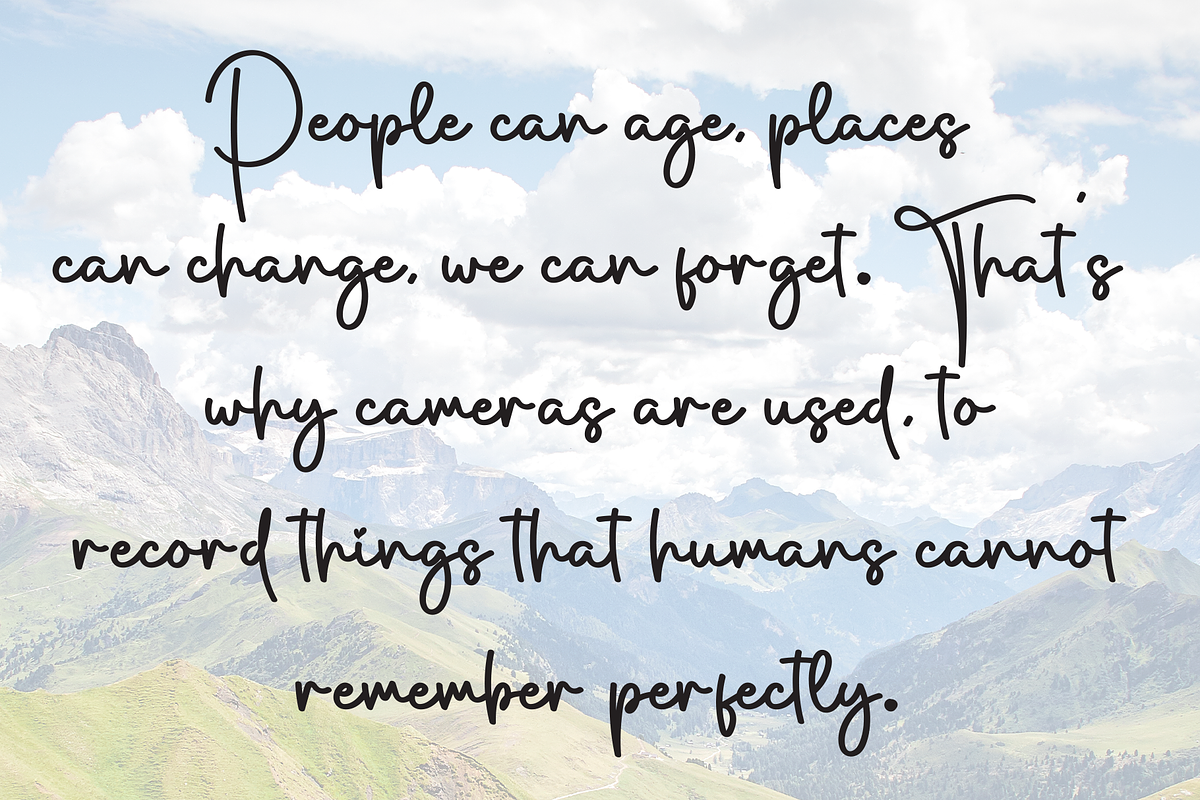 People can age, places
can change, we can forget. That's
why cameras are used, to
record things that humans cannot
remember perfectly.